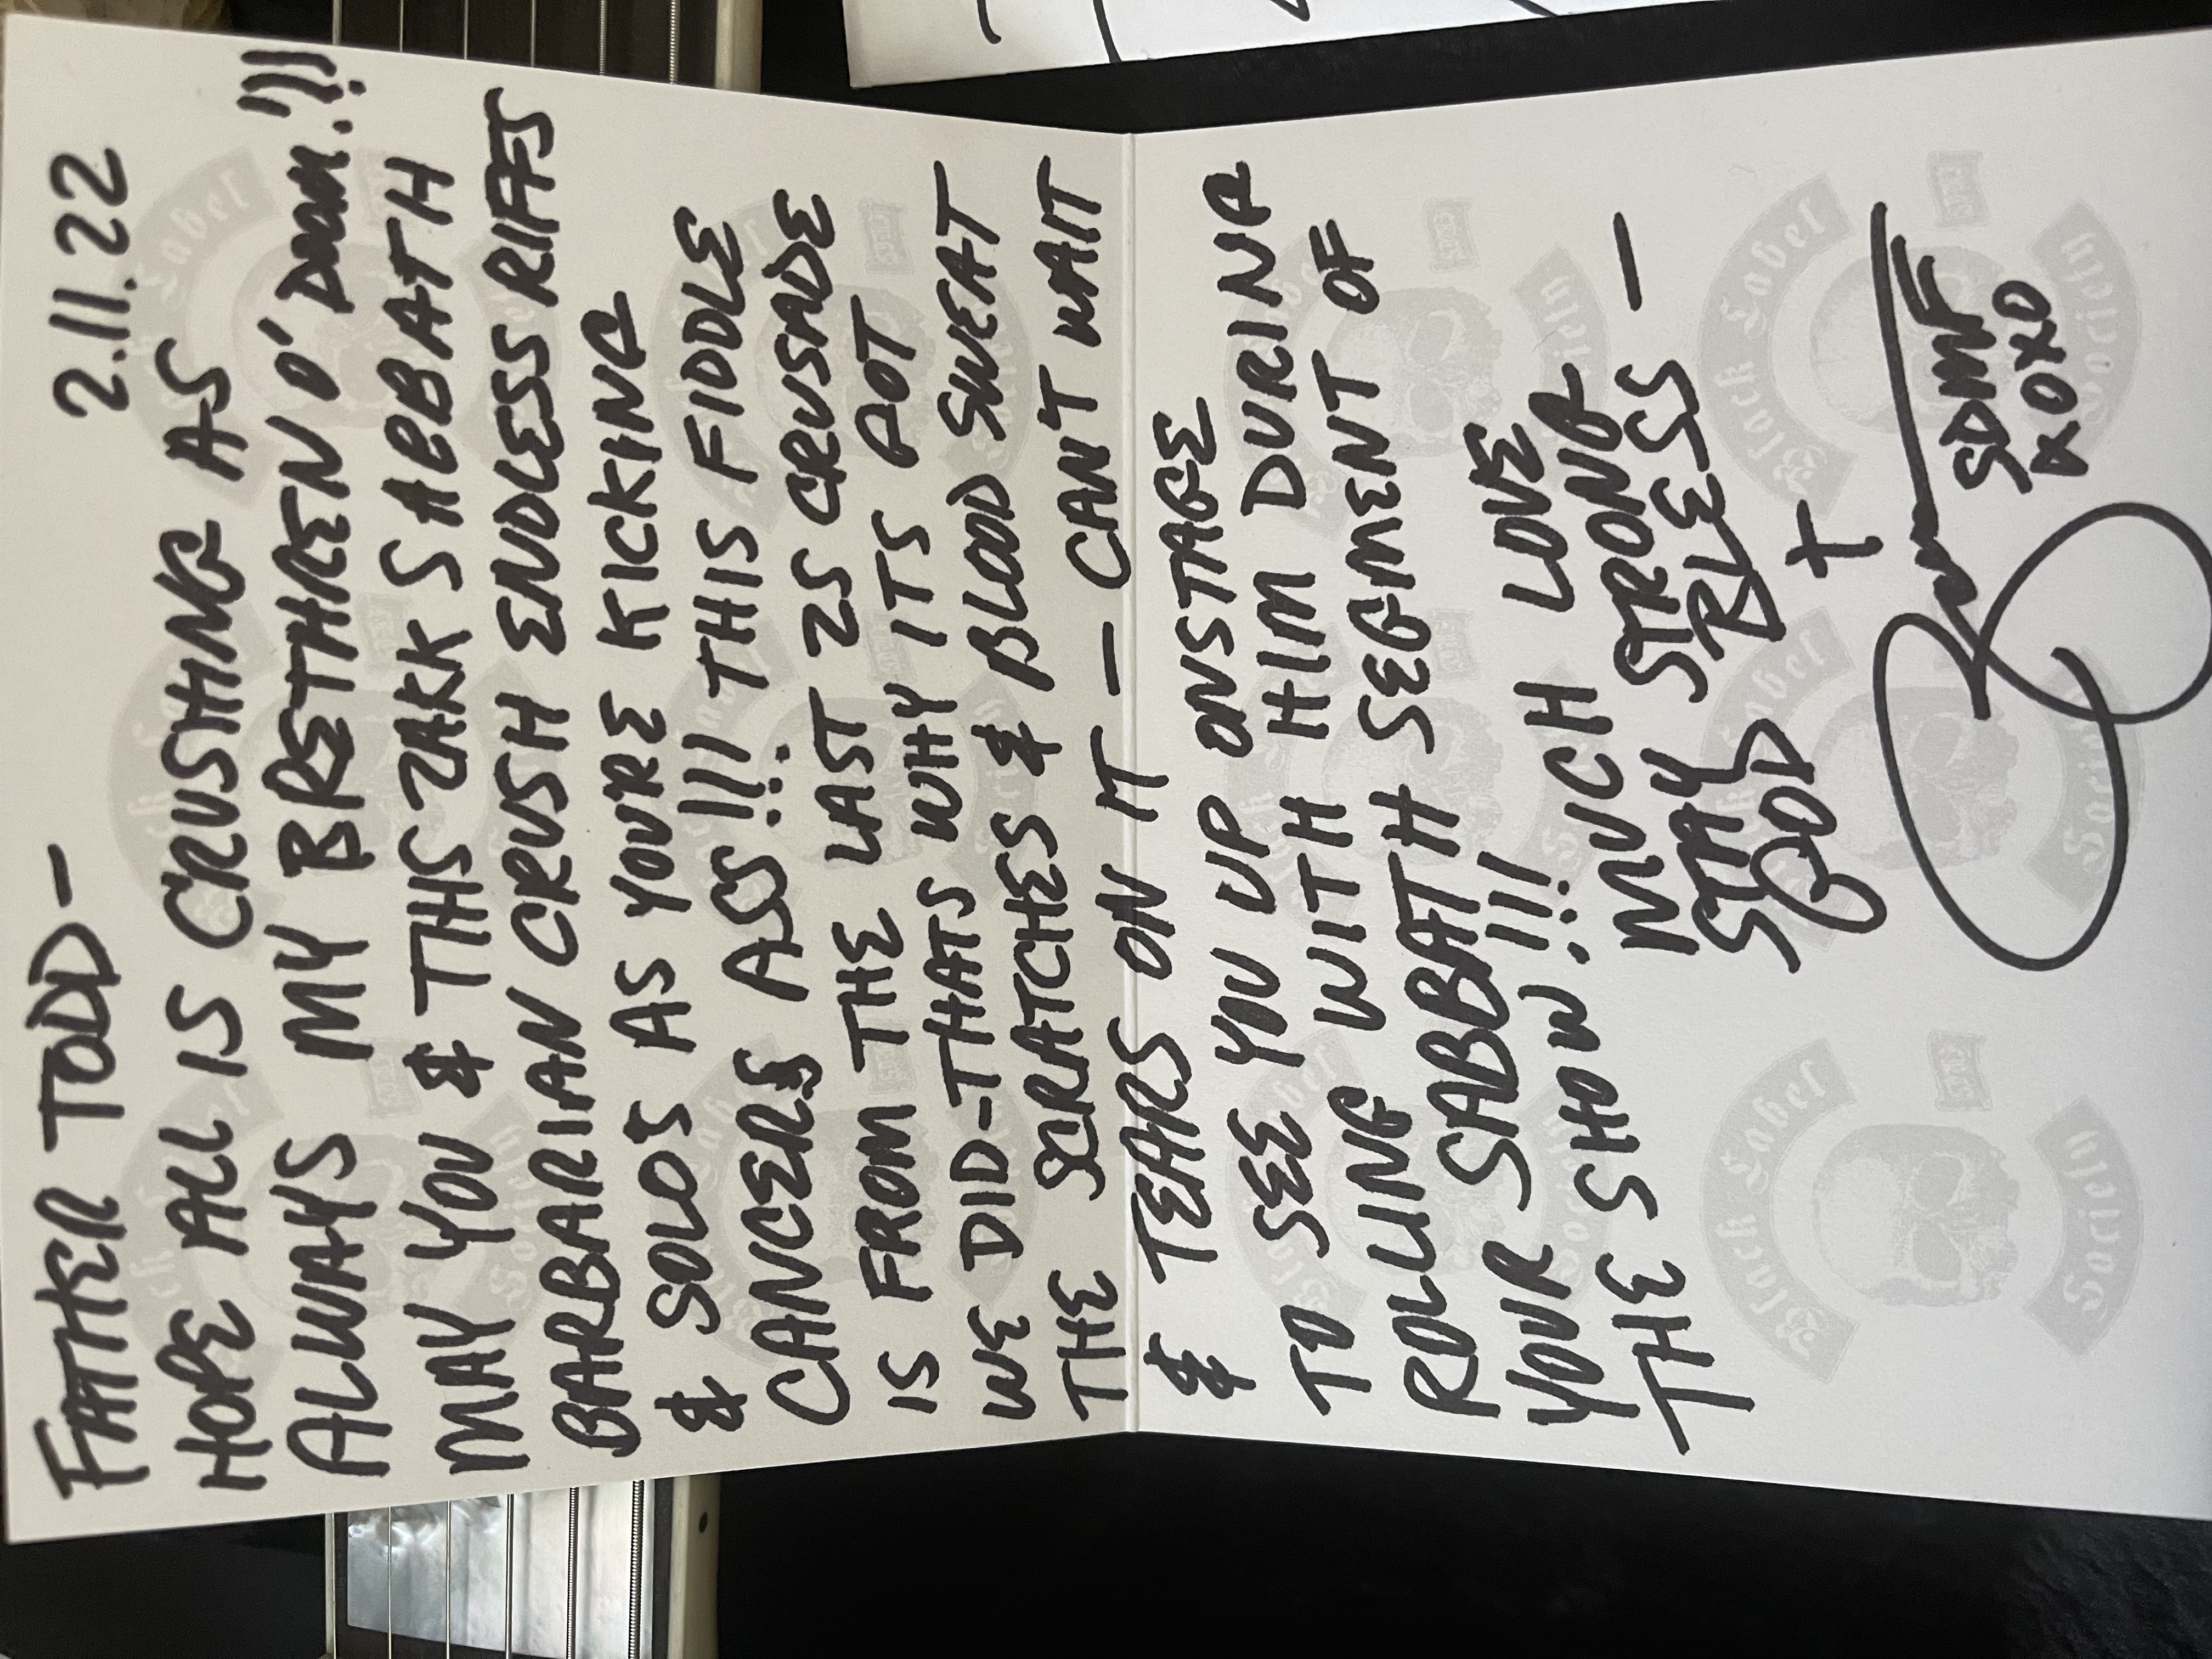 2.11.22
FATHER TODD-
HOPE ALL IS CRUSHING AS
ALWAYS MY BRETHREN O' DOOM!!!
MAY YOU & THIS ZAKK SABBATH
BARBARIAN CRUSH ENDLESS RIFFS
& SOLOS AS YOU'RE KICKING
CANCERS ASS!!! THIS FIDDLE
IS FROM THE LAST ZS CRUSADE
WE DID-THATS WHY ITS GOT
THE SCRATCHES & BLOOD SWEAT
& TEARS ON IT - CAN'T WAIT
TO SEE YOU UP ONSTAGE
ROLLING WITH HIM DURING
YOUR SABBATH SEGMENT OF
THE SHOW!!!
MUCH LOVE
STAY STRONG
GOD BLESS -
SDMF
XOXO
Black Label
Society